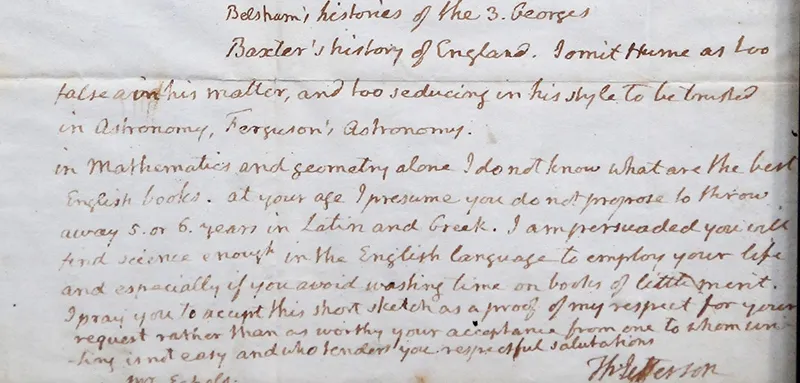 Belsham's histories of the 3. Georges
Baxter's history of England. I omit Hume as too
false in his matter, and too seducing in his style to be trusted
in Astronomy, Ferguson's Astronomy.
in Mathematics and geometry alone I do not know what are the best
English books. at your age I presume you do not propose to throw
away 5. or 6. years in Latin and Greek. I am persuaded you will
find science enough in the English language to employ your life
and especially if you avoid wasting time on books of little merit.
I pray you to accept this short sketch as a proof of my respect for your
request rather than as worthy your acceptance from one to whom wri-
-ting is not easy and who tenders you respectful salutations
Th Jefferson
Mr